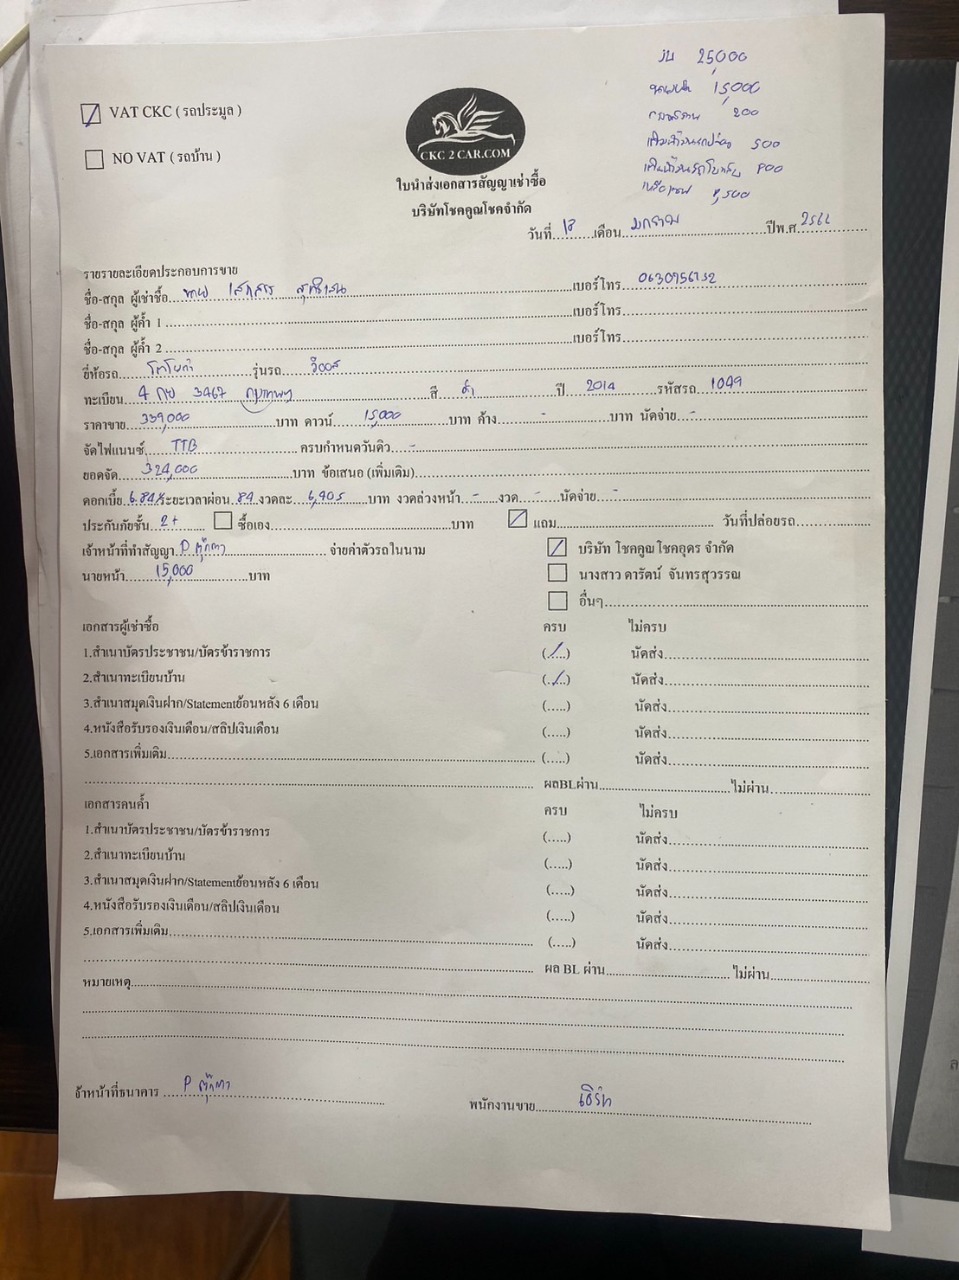 รับ 25,000
15,000
200
500
800
8,500
VAT CKC ( รถประมูล )
NO VAT ( รถบ้าน )
CKC 2 CAR.COM
ใบนำส่งเอกสารสัญญาเช่าซื้อ
บริษัทโชคคูณโชคจำกัด
วันที่ 18 เดือน มกราคม ปีพ.ศ. 2566
รายรายละเอียดประกอบการขาย
ชื่อ-สกุล ผู้เช่าซื้อ เบอร์โทร
ชื่อ-สกุล ผู้ค้ำ 1 เบอร์โทร
ชื่อ-สกุล ผู้ค้ำ 2 เบอร์โทร
ยี่ห้อรถ โตโยต้า รุ่นรถ วีออส
ทะเบียน 4 กษ 3467 กรุงเทพฯ สี ดำ ปี 2014 รหัสรถ 1049
ราคาขาย 339,000 บาท ดาวน์ 15,000 บาท ค้าง - บาท นัดจ่าย -
จัดไฟแนนซ์ TTB ครบกำหนดวันดิว -
ยอดจัด 324,000 บาท ข้อเสนอ (เพิ่มเติม)
ดอกเบี้ย 6.84% ระยะเวลาผ่อน 84 งวดละ 6,905 บาท งวดล่วงหน้า - งวด - นัดจ่าย -
ประกันภัยชั้น 2+ ซื้อเอง บาท แถม วันที่ปล่อยรถ
เจ้าหน้าที่ทำสัญญา P ตุ๊กตา จ่ายค่าตัวรถในนาม
บริษัท โชคคูณโชคอุดร จำกัด
นายหน้า 15,000 บาท
นางสาว ดารัตน์ จันทรสุวรรณ
อื่นๆ
เอกสารผู้เช่าซื้อ ครบ ไม่ครบ
1.สำเนาบัตรประชาชน/บัตรข้าราชการ (../..) นัดส่ง
2.สำเนาทะเบียนบ้าน (../..) นัดส่ง
3.สำเนาสมุดเงินฝาก/Statementย้อนหลัง 6 เดือน (.....) นัดส่ง
4.หนังสือรับรองเงินเดือน/สลิปเงินเดือน (.....) นัดส่ง
5.เอกสารเพิ่มเติม (.....) นัดส่ง
ผลBLผ่าน ไม่ผ่าน
เอกสารคนค้ำ ครบ ไม่ครบ
1.สำเนาบัตรประชาชน/บัตรข้าราชการ (.....) นัดส่ง
2.สำเนาทะเบียนบ้าน (.....) นัดส่ง
3.สำเนาสมุดเงินฝาก/Statementย้อนหลัง 6 เดือน (.....) นัดส่ง
4.หนังสือรับรองเงินเดือน/สลิปเงินเดือน (.....) นัดส่ง
5.เอกสารเพิ่มเติม (.....) นัดส่ง
ผล BL ผ่าน ไม่ผ่าน
หมายเหตุ
จ้าหน้าที่ธนาคาร P ตุ๊กตา
พนักงานขาย